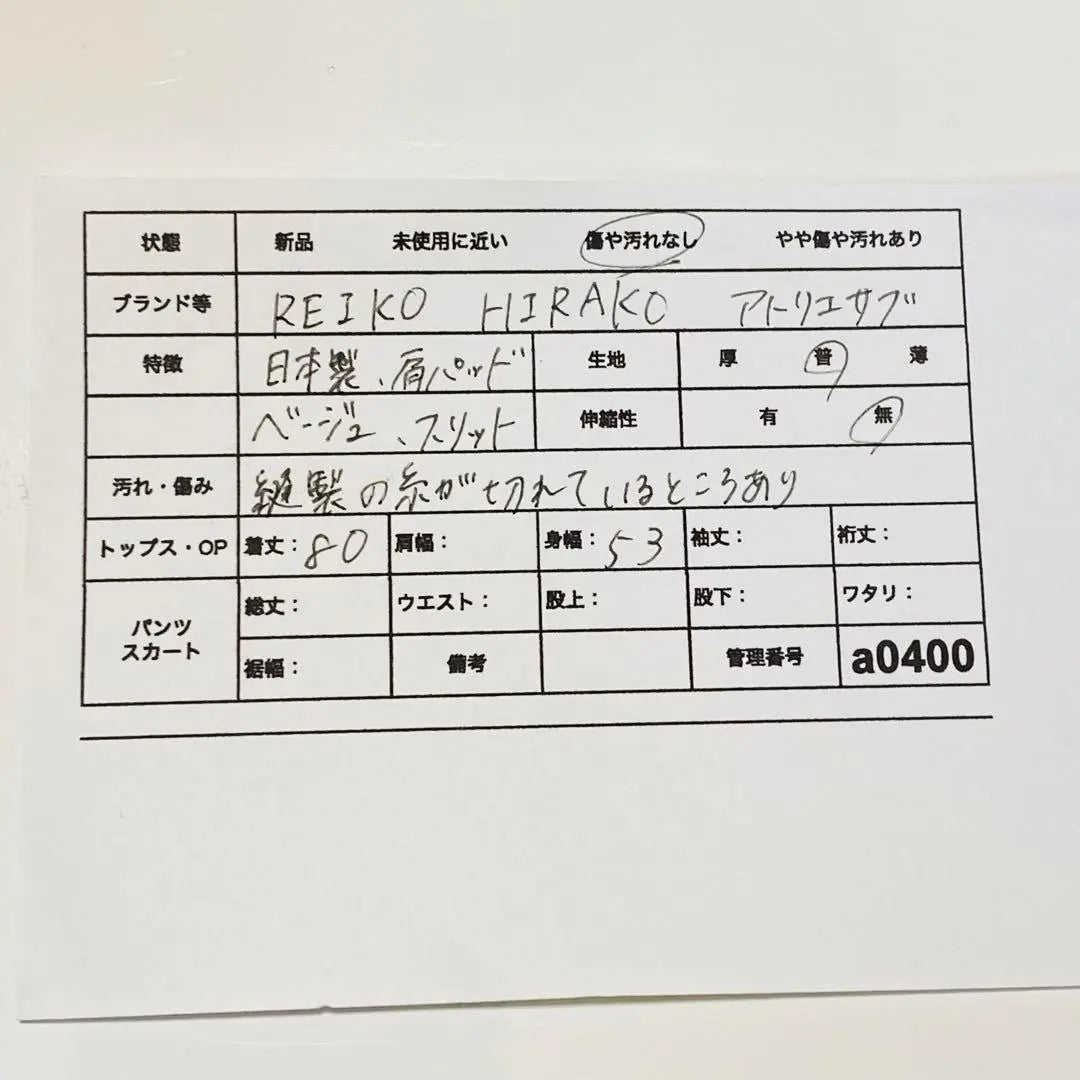 状態 新品 未使用に近い 傷や汚れなし やや傷や汚れあり
ブランド等 REIKO HIRAKO アトリエサブ
特徴 日本製、肩パッド 生地 厚 普 薄
ベージュ、スリット 伸縮性 有 無
汚れ・傷み 縫製の糸が切れているところあり
トップス・OP 着丈：80 肩幅： 身幅：53 袖丈： 裄丈：
パンツ スカート 総丈： ウエスト： 股上： 股下： ワタリ：
裾幅： 備考 管理番号 a0400